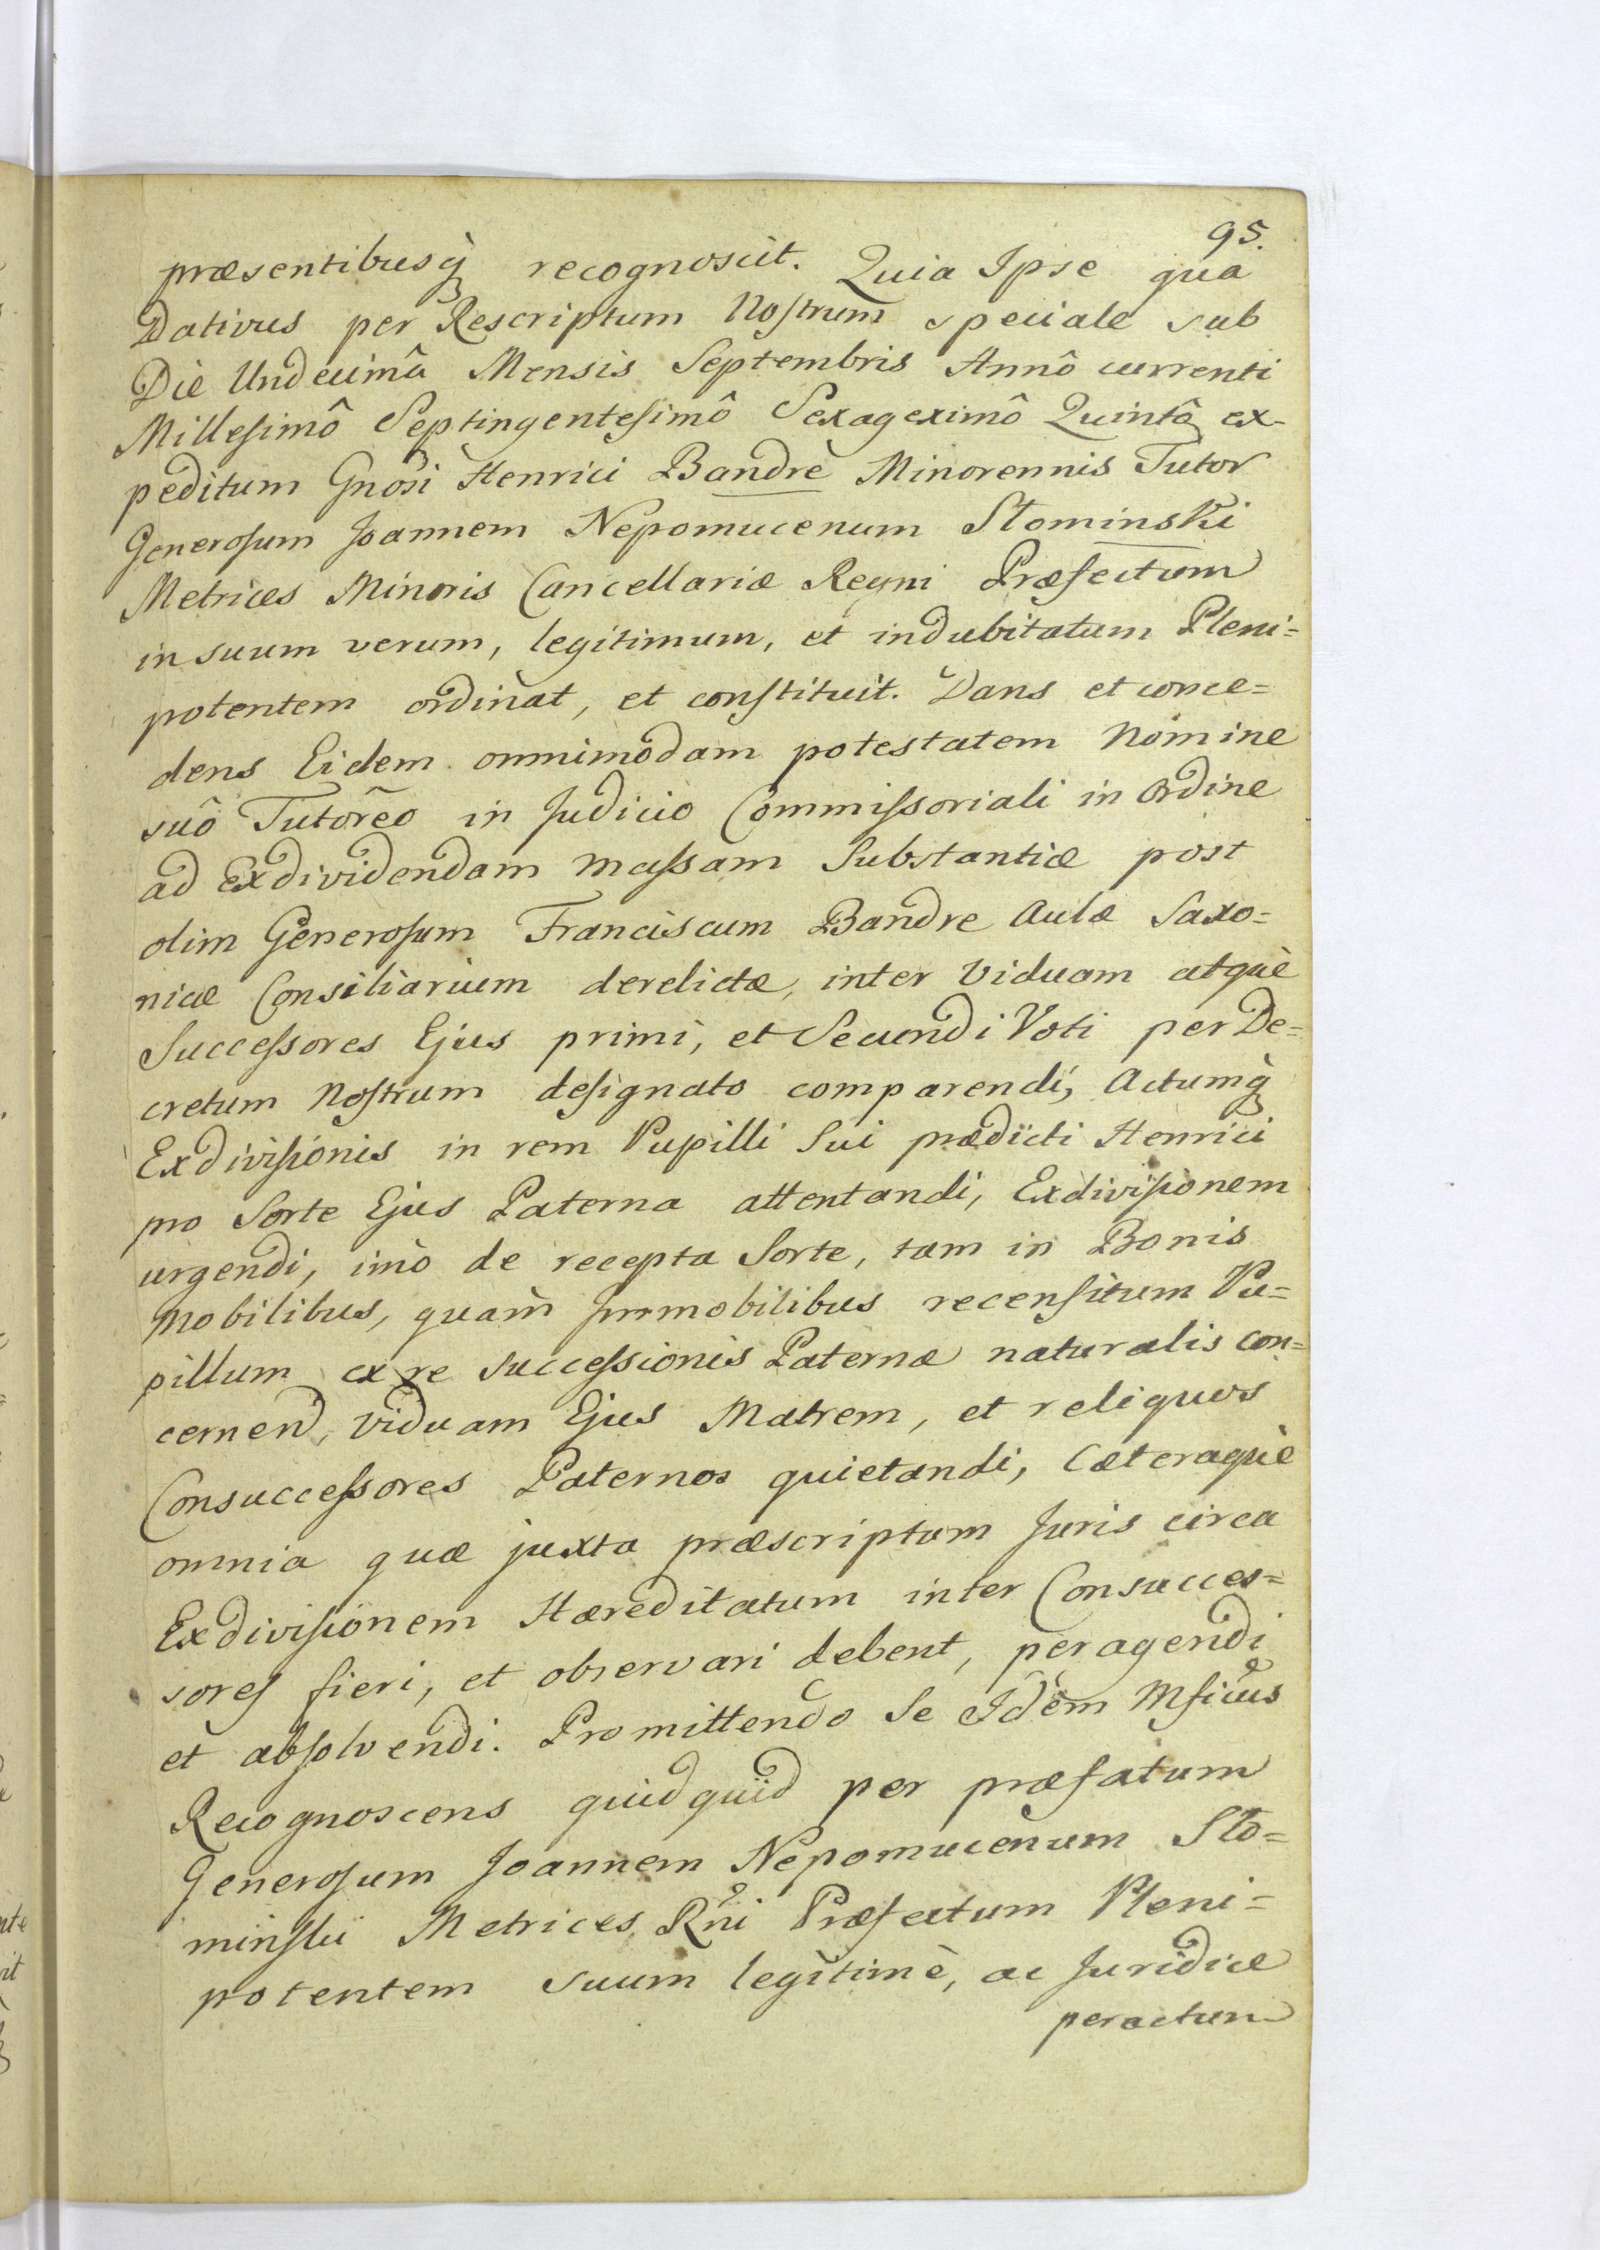 95.
præsentibusq̀ recognoscit. Quia Ipse qua
Dativus per Rescriptum Nostrum speciale sub
Die Undecimâ Mensis Septembris Annô currenti
Millesimô Septingentesimô Sexageximô Quintô ex-
peditum Gnosi Henrici Bandrè Minorennis Tutor
Generosum Joannem Nepomucenum Słominski
Metrices Minoris Cancellariæ Regni Præfectum
in suum verum, legitimum, et indubitatum Pleni=
potentem ordinat, et constituit. Dans et conce=
dens Eidem omnimodam potestatem Nomine
suô Tutorẽo in Judicio Commissoriali in Ordine
ad Exdividendam Massam Substantiæ post
olim Generosum Franciscum Bandre Aulæ Saxo=
nicæ Consiliarium derelictæ, inter Viduam atquè
Successores Ejus primi, et Secundi Voti per De=
cretum Nostrum designato comparendi, Actumq̀
Exdivisionis in rem Pupilli Sui prædicti Henrici
pro Sorte Ejus Paterna attentandi, Exdivisionem
urgendi, imò de recepta Sorte, tam in Bonis
Mobilibus, quam Immobilibus recensitum Pu=
pillum ex re successionis Paternæ naturalis con=
cernen, Viduam Ejus Matrem, et reliquos
Consuccessores Paternos quietandi, Cæteraquè
omnia quæ juxta præscriptum Juris circa
Exdivisionem Hæreditatum inter Consucces=
sores fieri, et observari debent, peragendi
et absolvendi. Promittendo Se Idem Mficus
Recognoscens quidquid per præfatum
Generosum Joannem Nepomucenum Sło=
minskii Metrices Rni Præfectum Pleni=
potentem suum legitimè, ac Juridice
peractum